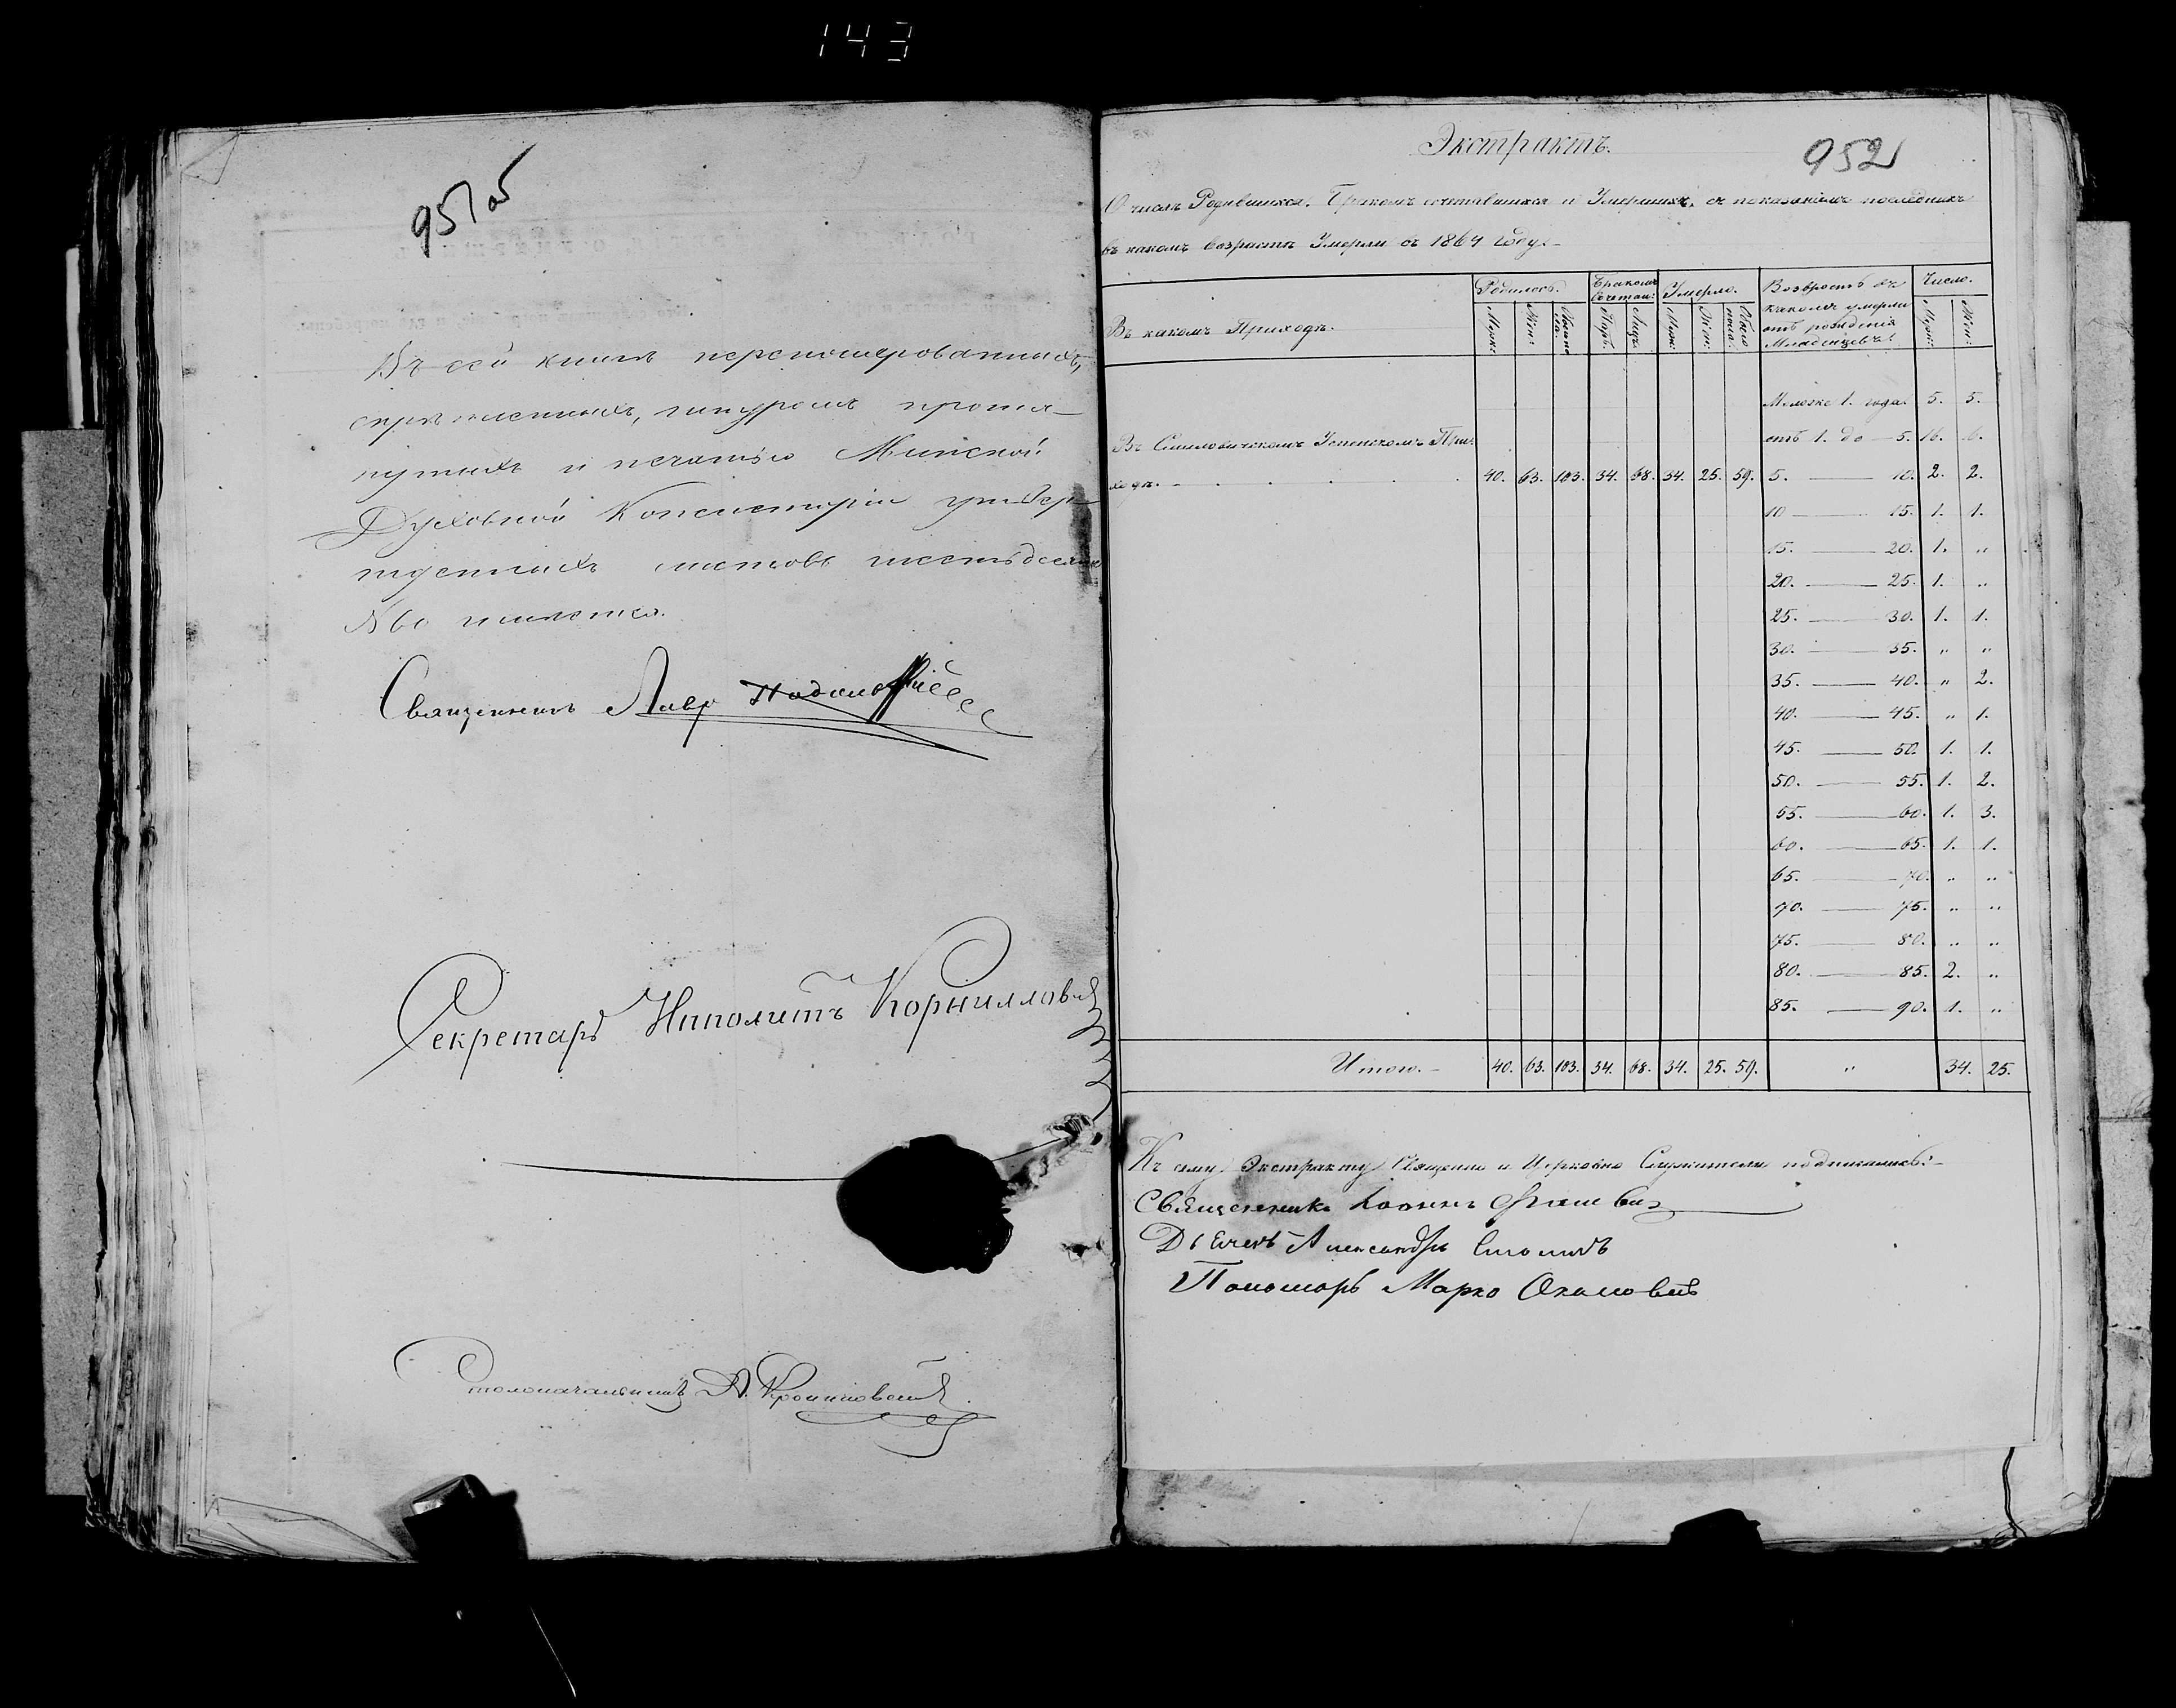 143
951 об
Въ сей книгѣ перенумерованныхъ,
скрѣпленныхъ, шнуромъ протя-
нутыхъ и печатью Минской
Духовной Консисторіи утвер-
жденныхъ листовъ шестьдесятъ
№ 60 имѣется.
Священникъ Лавръ
Секретарь Ипполитъ Корниллов
Столоначальникъ А.
952
Экстрактъ.
О числѣ Родившихся, Бракомъ сочетавшихся и Умершихъ, съ показаніемъ послѣднихъ
въ какомъ возрастѣ Умерли въ 1864 году.-
Въ какомъ Приходѣ. Родилось. Бракомъ Сочетал: Умерло. Возврастъ въ какомъ умерли отъ рожденія Младенцевъ. Число.
Муж: Жен: Паръ. Лицъ. Муж: Жен: Обоего пола. Муж: Жен:
Моложе 1. года 5. 5.
отъ 1. до — 5. 16. 6.
Въ Смиловичскомъ Успенскомъ При-
ходѣ. 40. 63. 103. 34. 68. 34. 25. 59. 5. — 10. 2. 2.
10 — 15. 1. 1.
15. — 20. 1. „
20. — 25. 1. „
25. — 30. 1. 1.
30. — 35. „ „
35. — 40. „ 2.
40. — 45. „ 1.
45. — 50. 1. 1.
50. — 55. 1. 2.
55. — 60. 1. 3.
60. — 65. 1. 1.
65. — 70. „ „
70. — 75. „ „
75. — 80. „ „
80. — 85. 2. „
85. — 90. 1. „
Итого.- 40. 63. 103. 34. 68. 34. 25. 59. „ 34. 25.
Къ сему Экстракту Священно и Церковно Служители подписались:-
Священникъ Іоаннъ
Дьячекъ Александръ
Пономарь Марко